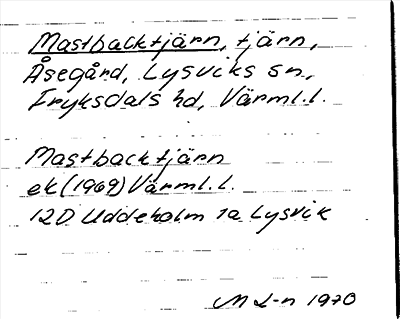 Mastbacktjärn, tjärn,
Åsegård, Lysviks sn,
Fryksdals hd, Värml.l.
Mastbacktjärn
ek (1969) Värml.l.
12D Uddeholm 1a Lysvik
M L-n 1970